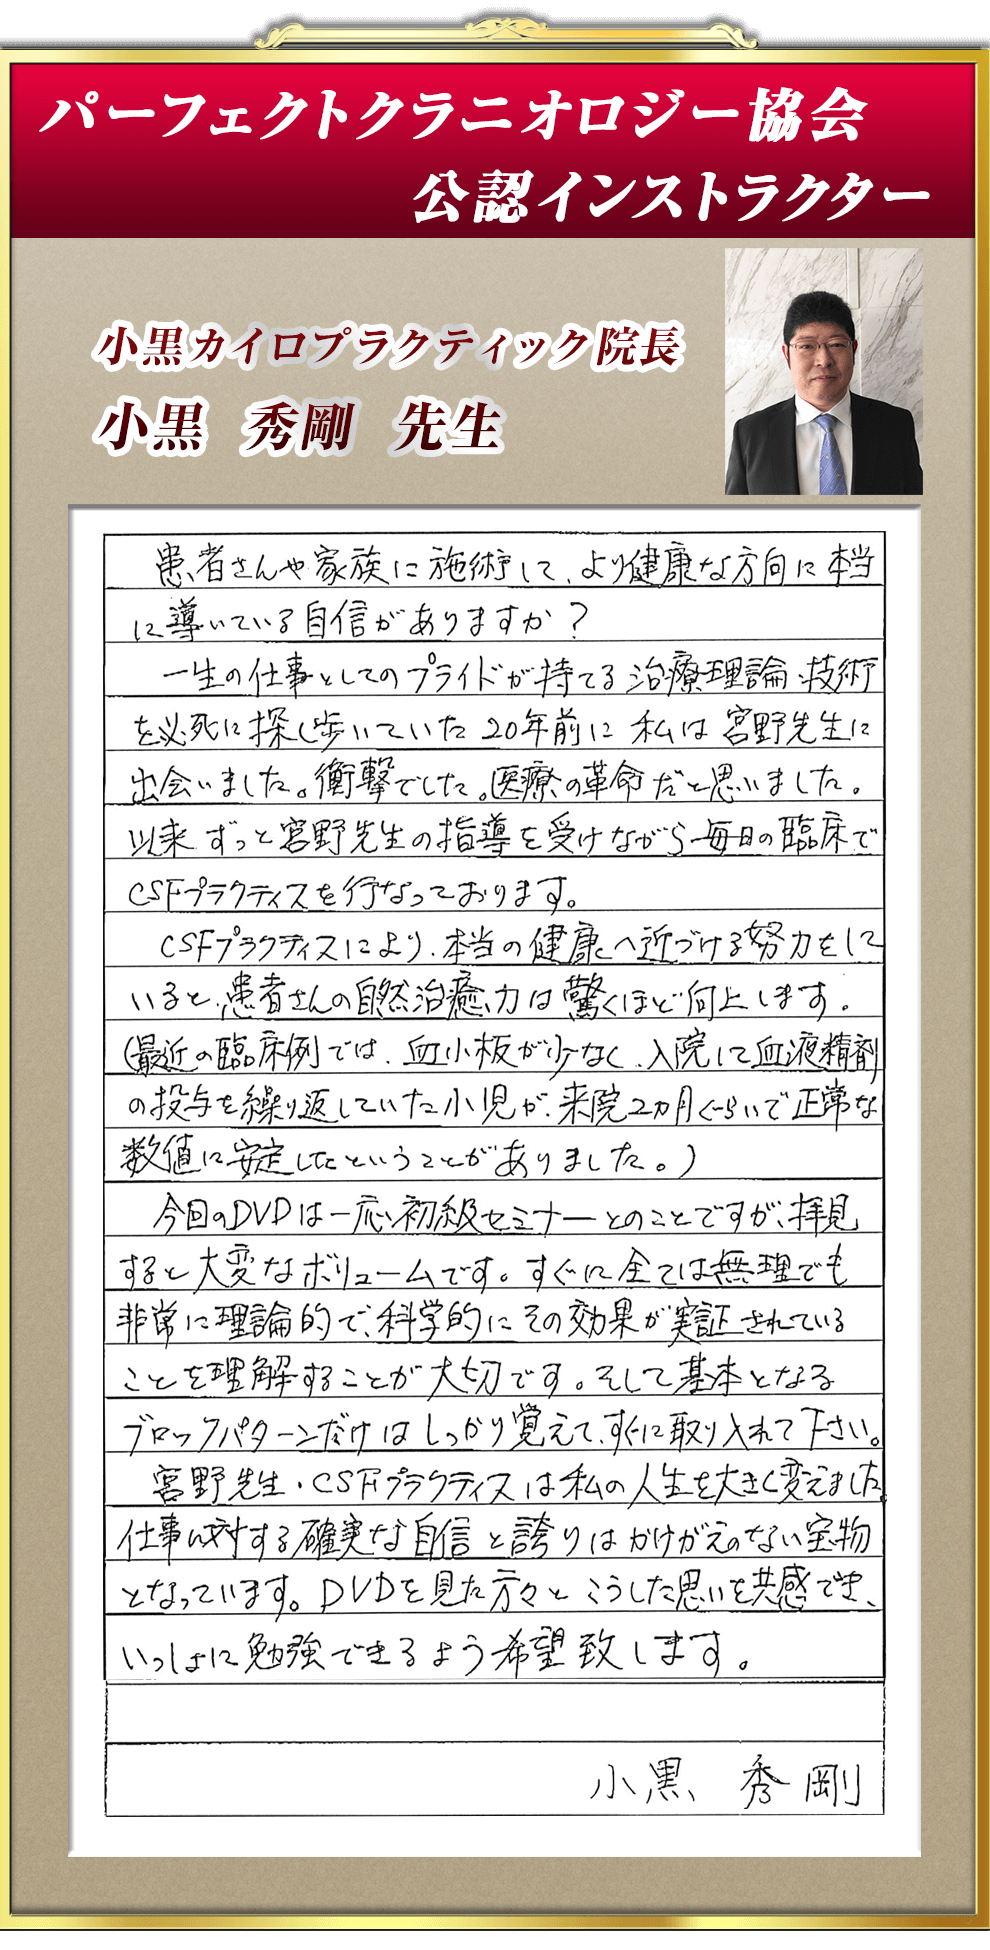 パーフェクトクラニオロジー協会
公認インストラクター
小黒カイロプラクティック院長
小黒 秀剛 先生
患者さんや家族に施術して、より健康な方向に本当
に導いている自信がありますか?
一生の仕事としてのプライドが持てる治療理論、技術
を必死に探し歩いていた20年前に私は宮野先生に
出会いました。衝撃でした。医療の革命だと思いました。
以来ずっと宮野先生の指導を受けながら毎日の臨床で
CSFプラクティスを行なっております。
CSFプラクティスにより、本当の健康へ近づける努力をして
いると、患者さんの自然治癒力は驚くほど向上します。
(最近の臨床例では、血小板が少なく、入院して血液精剤
の投与を繰り返していた小児が、来院2カ月くらいで正常な
数値に安定したということがありました。)
今回のDVDは一応、初級セミナーとのことですが、拝見
すると大変なボリュームです。すぐに全ては無理でも
非常に理論的で、科学的にその効果が実証されている
ことを理解することが大切です。そして基本となる
ブロックパターンだけはしっかり覚えて、すぐに取り入れて下さい。
宮野先生・CSFプラクティスは私の人生を大きく変えました。
仕事に対する確実な自信と誇りはかけがえのない宝物
となっています。DVDを見た方々とこうした思いを共感でき、
いっしょに勉強できるよう希望致します。
小黒 秀剛